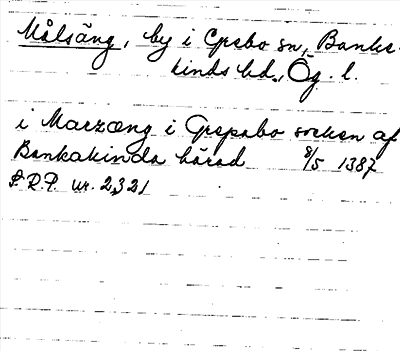 Målsäng, by i Grebo sn, Banke-
kinds hd., Ög. l.
i Marzæng i Grepabo socken af
Bankakinda härad 8/5 1387
S.R.P. nr. 2321